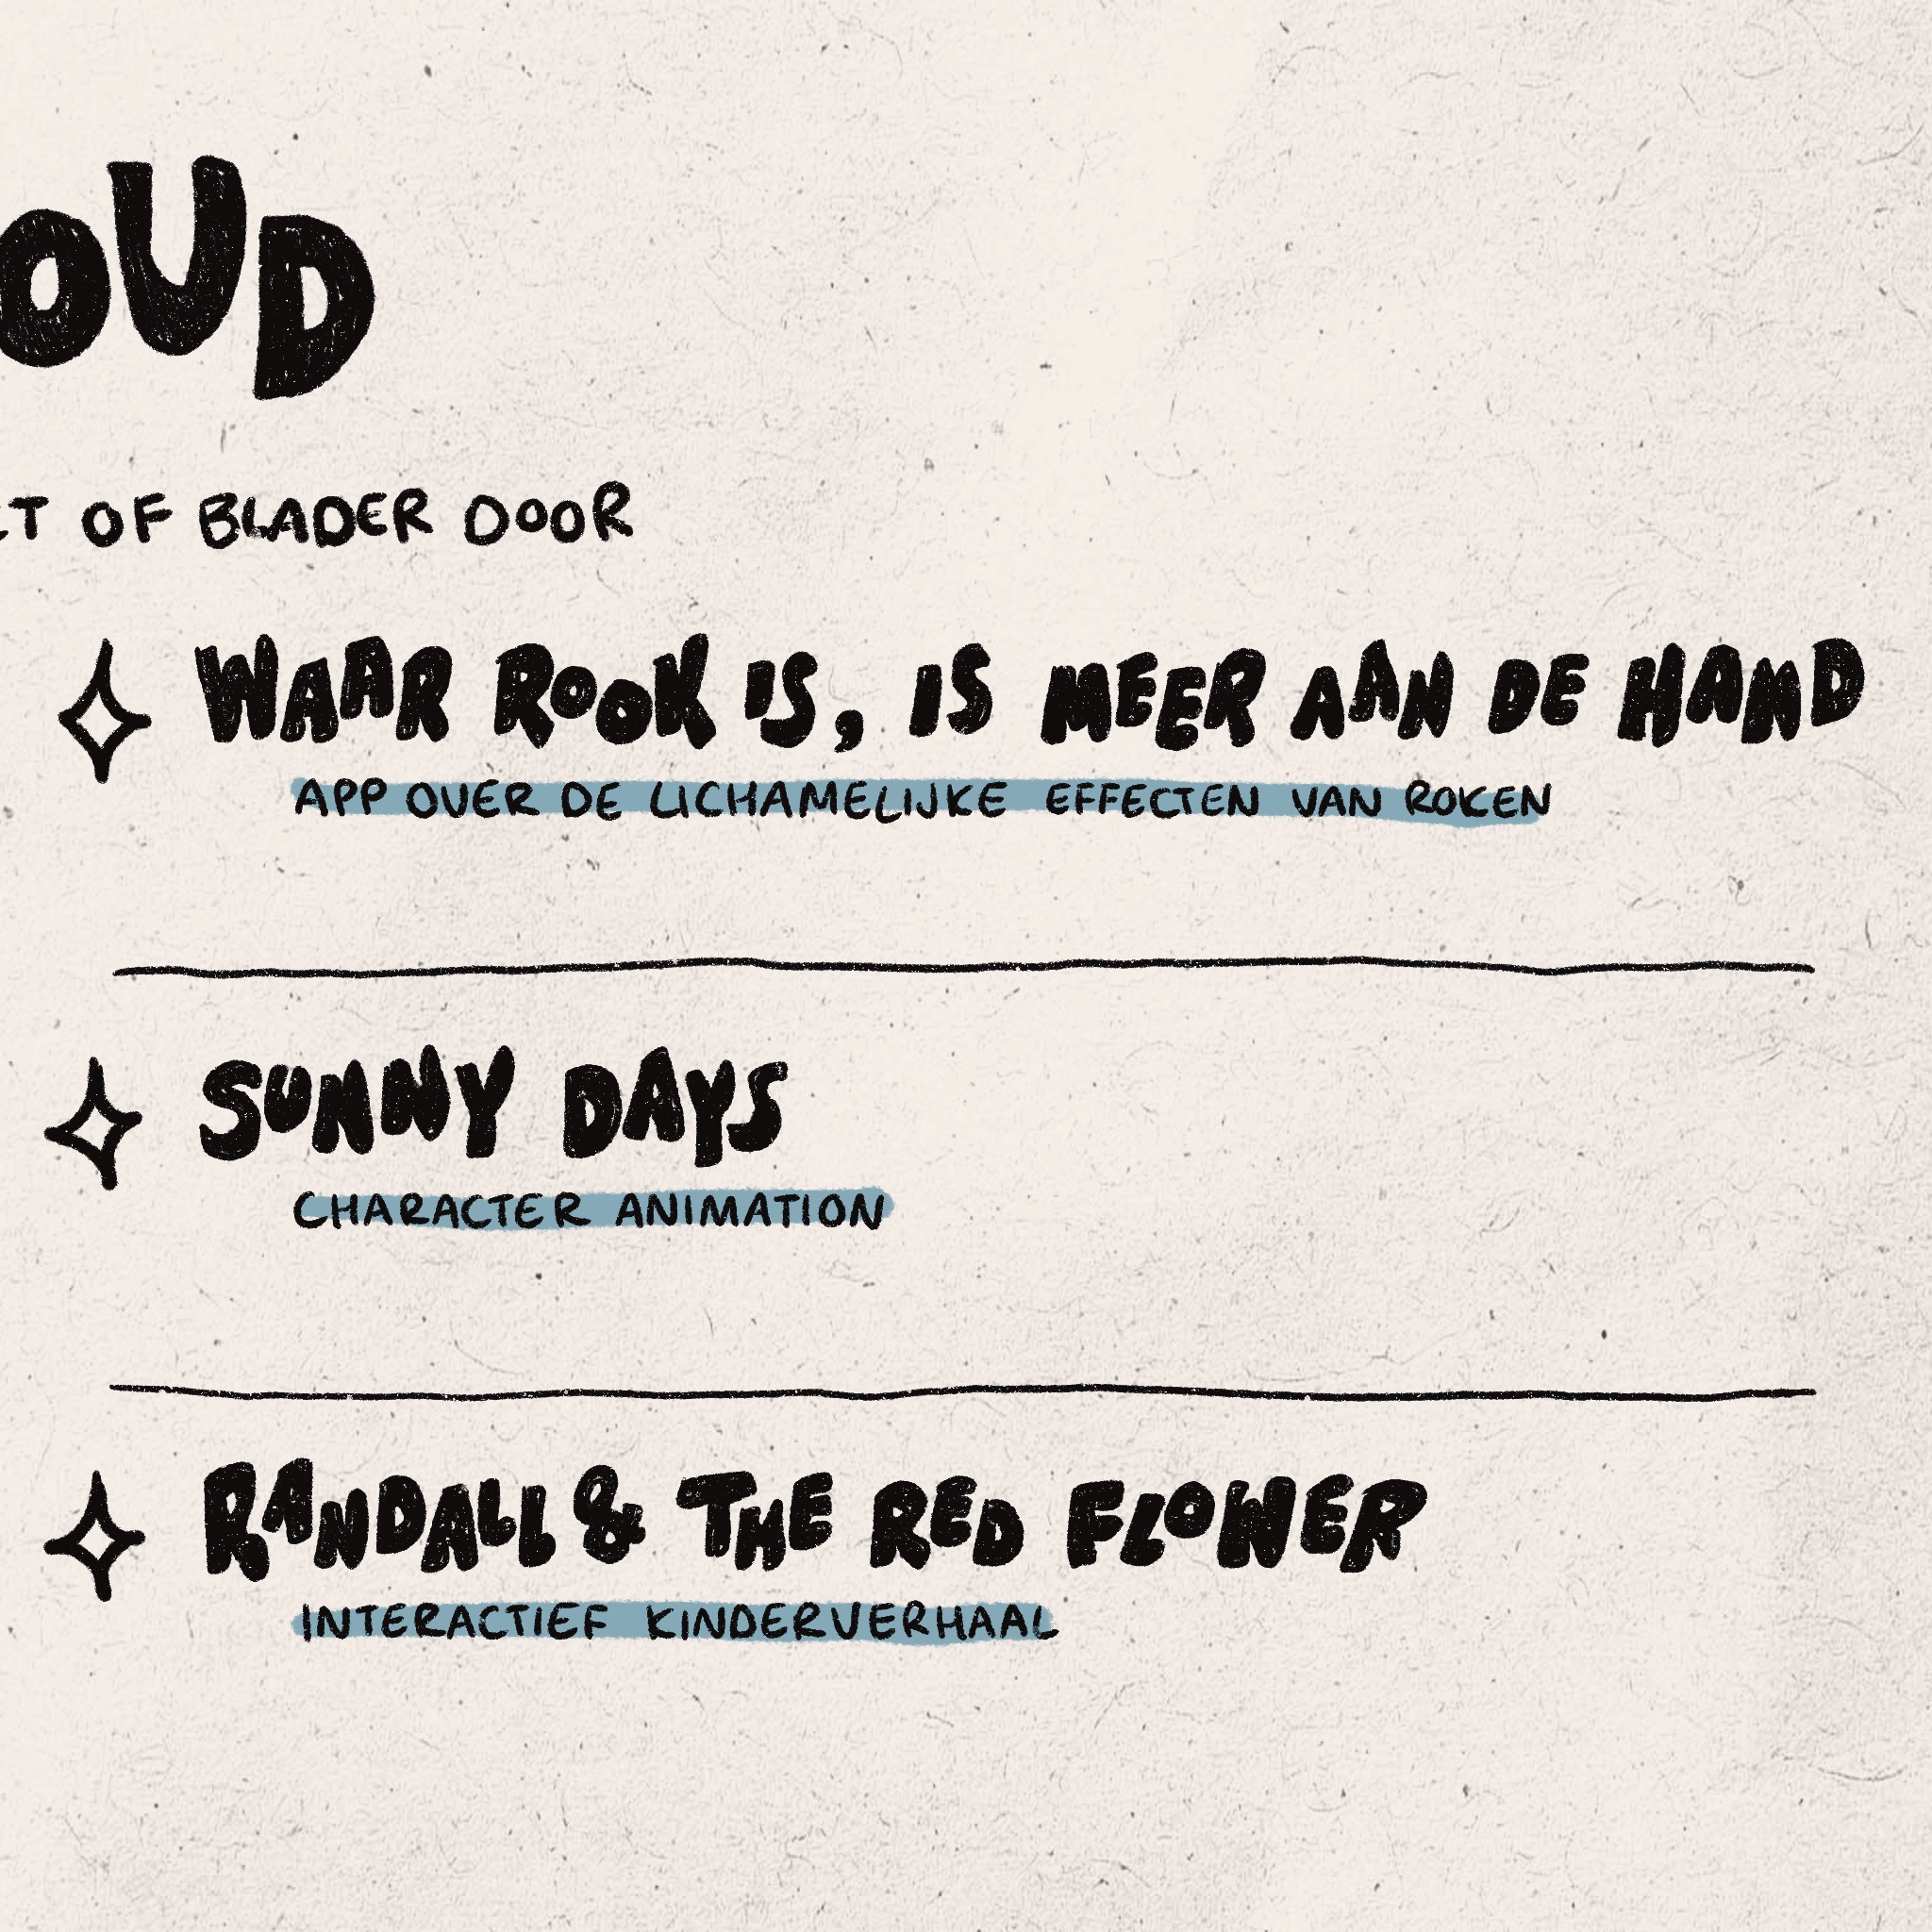 OUD
T OF BLADER DOOR
WAAR ROOK IS, IS MEER AAN DE HAND
APP OVER DE LICHAMELIJKE EFFECTEN VAN ROKEN
SUNNY DAYS
CHARACTER ANIMATION
RANDALL & THE RED FLOWER
INTERACTIEF KINDERVERHAAL